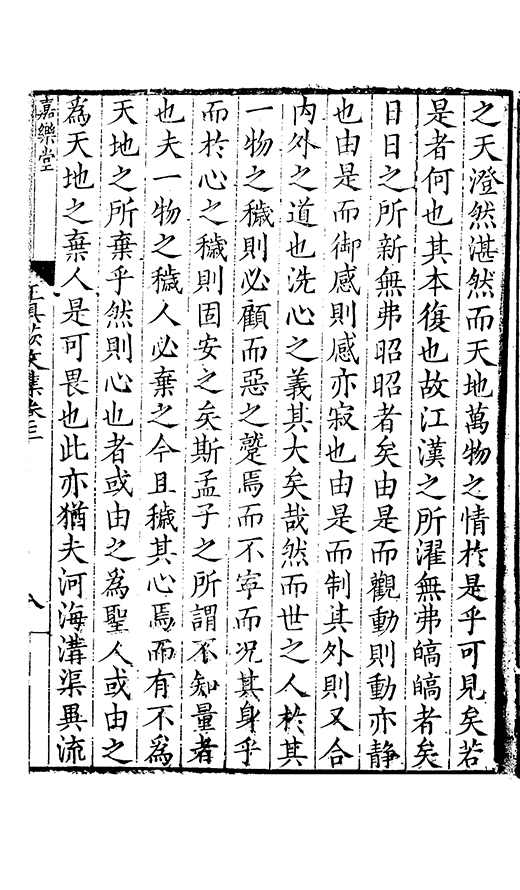 之天澄然湛然而天地萬物之情於是乎可見矣若
是者何也其本復也故江漢之所濯無弗皜皜者矣
日日之所新無弗昭昭者矣由是而觀動則動亦静
也由是而御感則感亦寂也由是而制其外則又合
内外之道也洗心之義其大矣哉然而世之人於其
一物之穢則必顧而惡之蹙焉而不寧而况其身乎
而於心之穢則固安之矣斯孟子之所謂不知量者
也夫一物之穢人必棄之今且穢其心焉而有不為
天地之所棄乎然則心也者或由之為聖人或由之
為天地之棄人是可畏也此亦猶夫河海溝渠異流
嘉樂堂
文集卷三
八